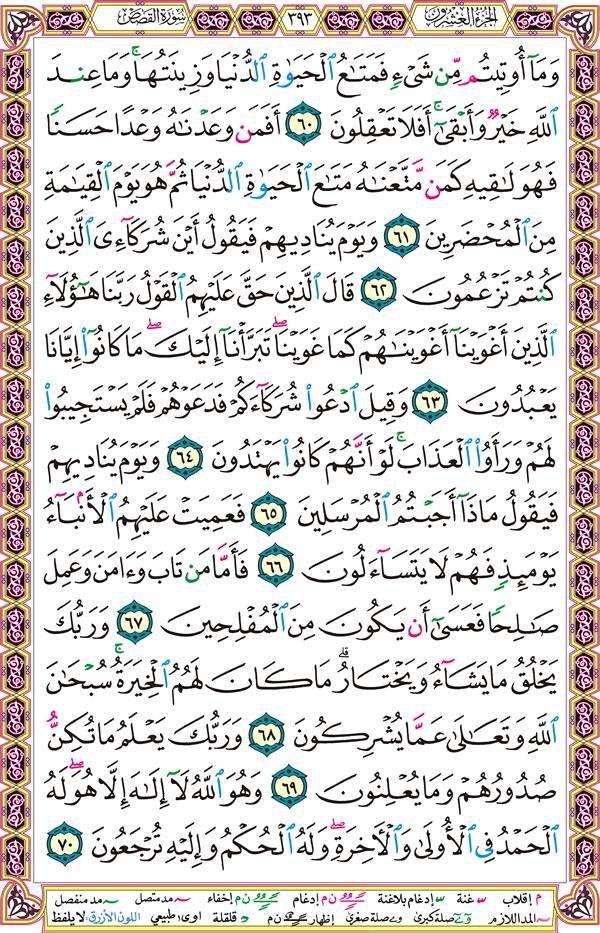 الجزء العشرون ٣٩٣ سورة القصص
وَمَآ أُوتِيتُم مِّن شَىْءٍ فَمَتَٰعُ ٱلْحَيَوٰةِ ٱلدُّنْيَا وَزِينَتُهَا ۚ وَمَا عِندَ
ٱللَّهِ خَيْرٌ وَأَبْقَىٰٓ ۚ أَفَلَا تَعْقِلُونَ ٦٠ أَفَمَن وَعَدْنَٰهُ وَعْدًا حَسَنًا
فَهُوَ لَٰقِيهِ كَمَن مَّتَّعْنَٰهُ مَتَٰعَ ٱلْحَيَوٰةِ ٱلدُّنْيَا ثُمَّ هُوَ يَوْمَ ٱلْقِيَٰمَةِ
مِنَ ٱلْمُحْضَرِينَ ٦١ وَيَوْمَ يُنَادِيهِمْ فَيَقُولُ أَيْنَ شُرَكَآءِىَ ٱلَّذِينَ
كُنتُمْ تَزْعُمُونَ ٦٢ قَالَ ٱلَّذِينَ حَقَّ عَلَيْهِمُ ٱلْقَوْلُ رَبَّنَا هَٰٓؤُلَآءِ
ٱلَّذِينَ أَغْوَيْنَآ أَغْوَيْنَٰهُمْ كَمَا غَوَيْنَا ۖ تَبَرَّأْنَآ إِلَيْكَ ۖ مَا كَانُوٓا۟ إِيَّانَا
يَعْبُدُونَ ٦٣ وَقِيلَ ٱدْعُوا۟ شُرَكَآءَكُمْ فَدَعَوْهُمْ فَلَمْ يَسْتَجِيبُوا۟
لَهُمْ وَرَأَوُا۟ ٱلْعَذَابَ ۚ لَوْ أَنَّهُمْ كَانُوا۟ يَهْتَدُونَ ٦٤ وَيَوْمَ يُنَادِيهِمْ
فَيَقُولُ مَاذَآ أَجَبْتُمُ ٱلْمُرْسَلِينَ ٦٥ فَعَمِيَتْ عَلَيْهِمُ ٱلْأَنۢبَآءُ
يَوْمَئِذٍ فَهُمْ لَا يَتَسَآءَلُونَ ٦٦ فَأَمَّا مَن تَابَ وَءَامَنَ وَعَمِلَ
صَٰلِحًا فَعَسَىٰٓ أَن يَكُونَ مِنَ ٱلْمُفْلِحِينَ ٦٧ وَرَبُّكَ
يَخْلُقُ مَا يَشَآءُ وَيَخْتَارُ ۗ مَا كَانَ لَهُمُ ٱلْخِيَرَةُ ۚ سُبْحَٰنَ
ٱللَّهِ وَتَعَٰلَىٰ عَمَّا يُشْرِكُونَ ٦٨ وَرَبُّكَ يَعْلَمُ مَا تُكِنُّ
صُدُورُهُمْ وَمَا يُعْلِنُونَ ٦٩ وَهُوَ ٱللَّهُ لَآ إِلَٰهَ إِلَّا هُوَ ۖ لَهُ
ٱلْحَمْدُ فِى ٱلْأُولَىٰ وَٱلْءَاخِرَةِ ۖ وَلَهُ ٱلْحُكْمُ وَإِلَيْهِ تُرْجَعُونَ ٧٠
م إقلاب س غنة س إدغام بلاغنة ن م إدغام ن م إخفاء مد متصل مد منفصل
المد اللازم صلة كبرى صلة صغرى إظهار ن م قلقلة اوى طبيعي اللون الأزرق: لا يلفظ